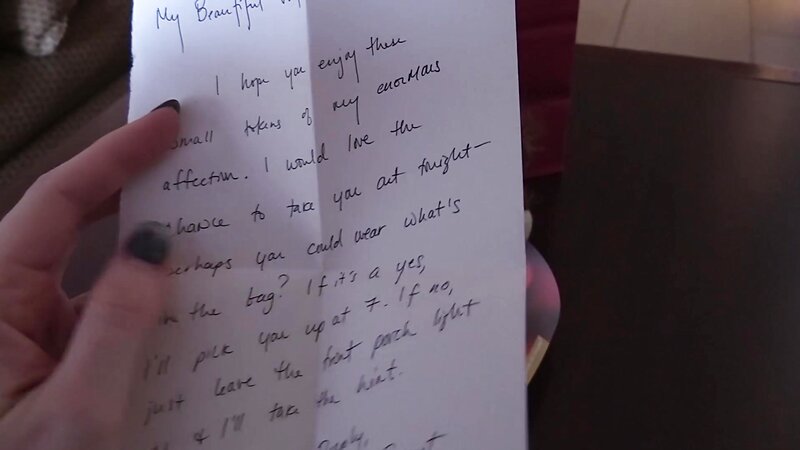 My Beautiful
I hope you enjoy these
small tokens of my enormous
affection. I would love the
chance to take you out tonight—
perhaps you could wear what's
in the bag? If it's a yes,
I'll pick you up at 7. If no,
just leave the front porch light
& I'll take the hint.